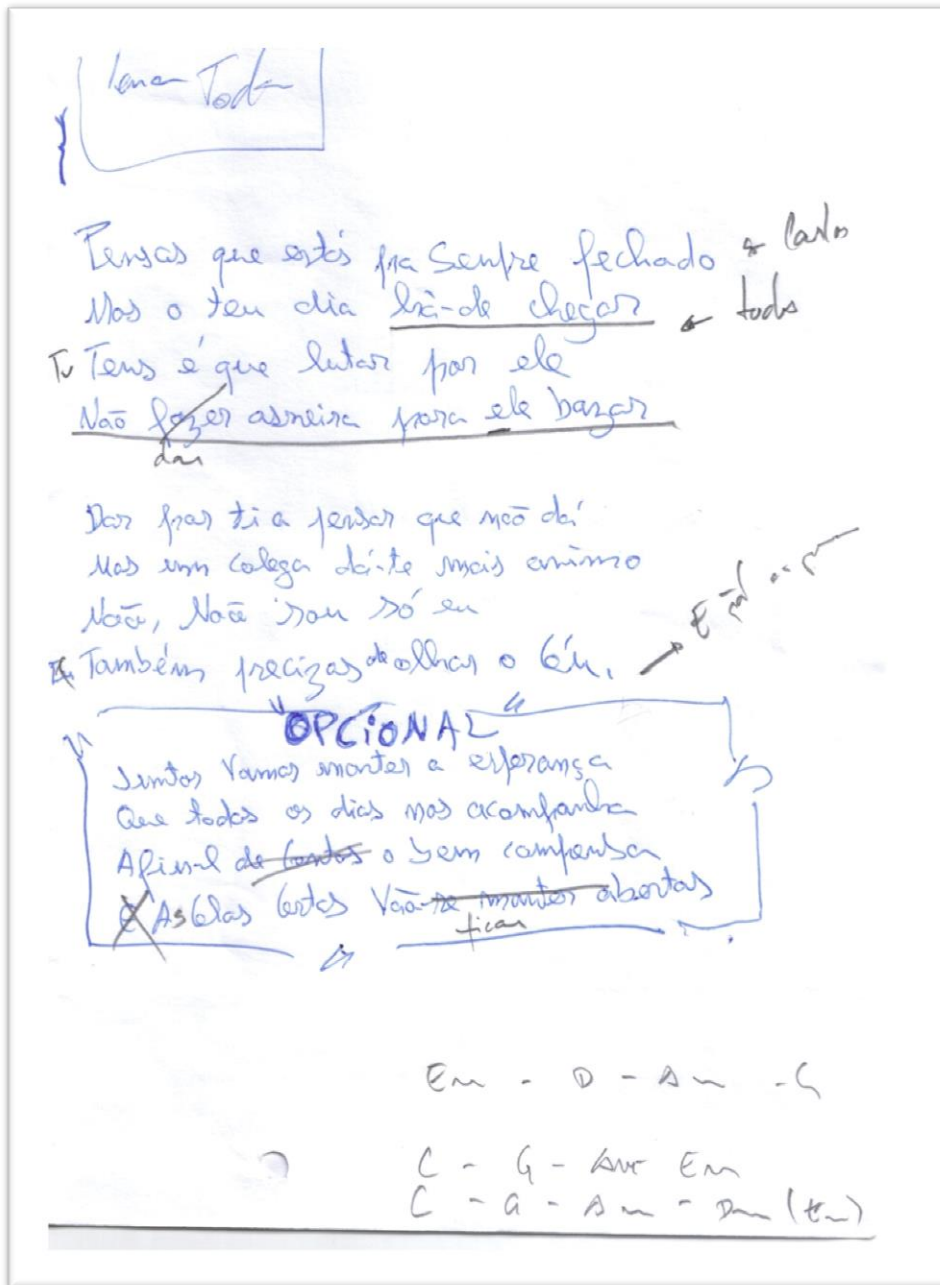 Pensas que estás pra Sempre fechado Carlos
Mas o teu dia há-de chegar todos
Tu Tens é que lutar por ele
Não fazer asneira para ele bazar
dar
Dar por ti a pensar que não dá
Mas um colega dá-te mais animo
Não, Não sou só eu
Também precizas de olhar o Céu.
E não
OPCIONAL
Juntos Vamos manter a esperança
Que todos os dias nos acompanha
Afinal de Contas o bem compensa
E As Celas Vão-se manter abertas
ficar
Em - D - Am - G
C - G - Am Em
C - G - Am - Dm (Em)